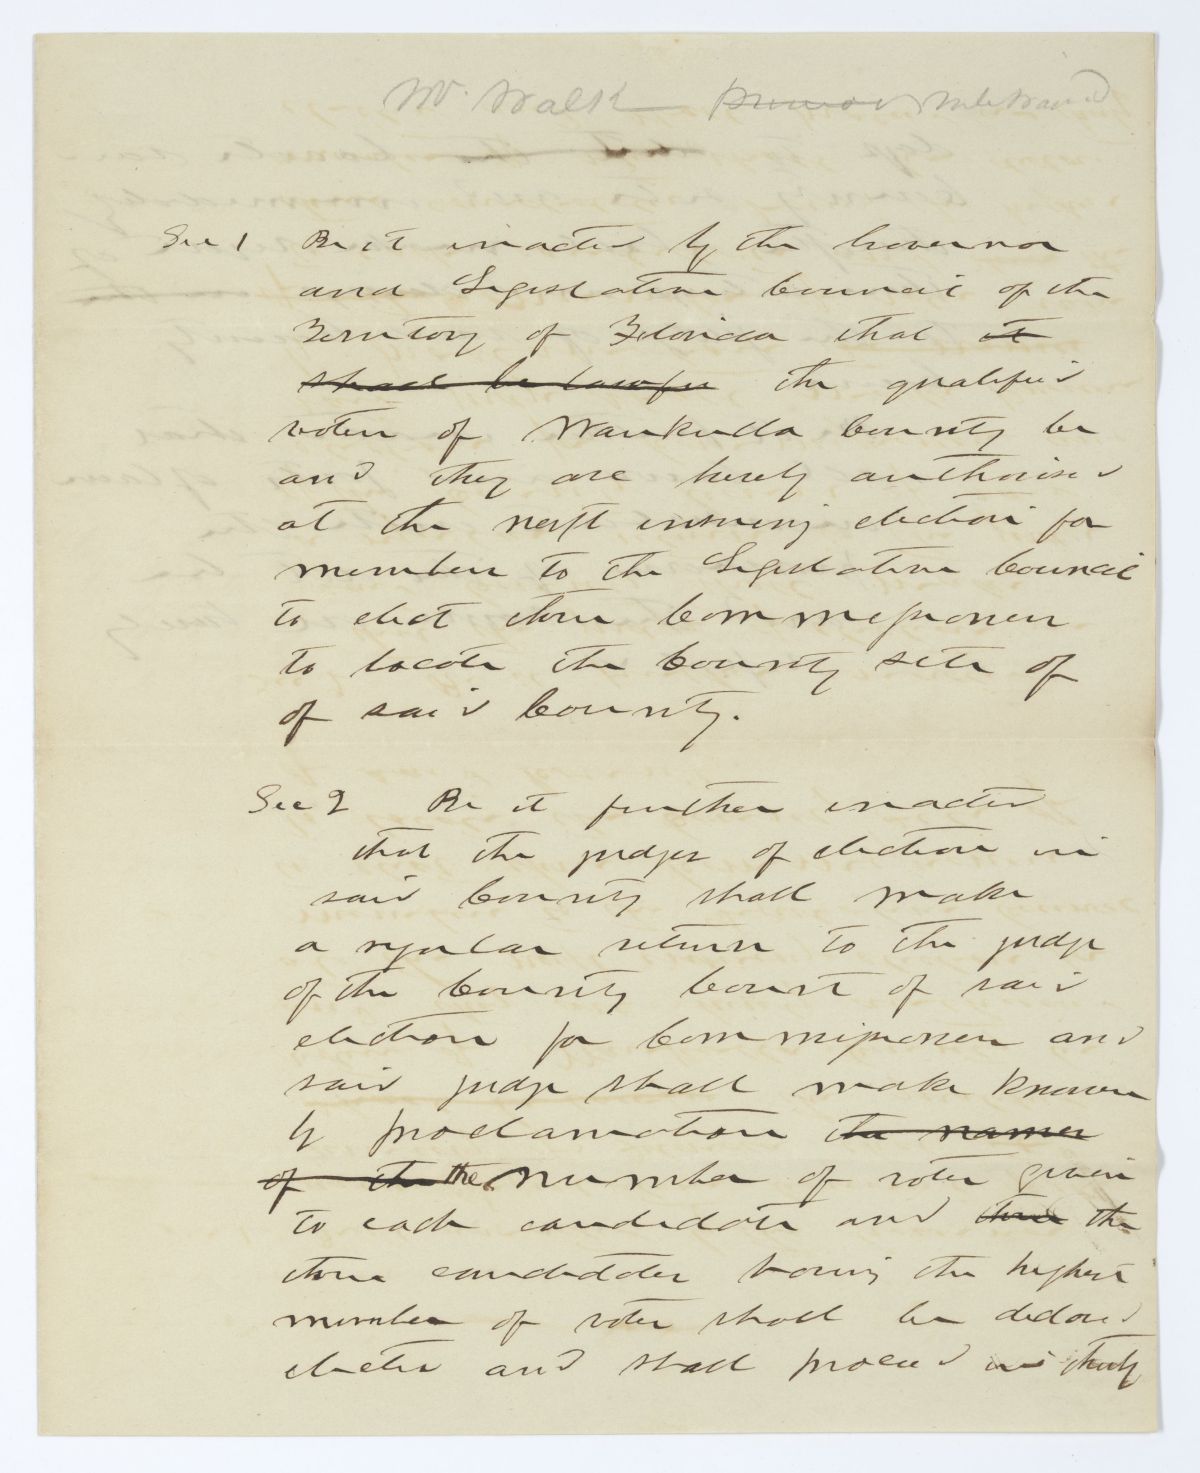 Mr. Walk
Sec 1 Be it enacted by the Governor
and Legislative Council of the
Territory of Florida that it
shall be lawful the qualified
voters of Waukulla County be
and they are hereby authorised
at the next ensuing election for
members to the Legislative Council
to elect three Commissioners
to locate the County site of
of said County.
Sec 2 Be it further enacted
that the judges of election in
said County shall make
a regular return to the judge
of the County Court of said
election for Commissioners and
said judge shall make known
by proclamation the names
of the the number of votes given
to each candidate and three the
three candidates having the highest
number of votes shall be declared
elected and shall proceed